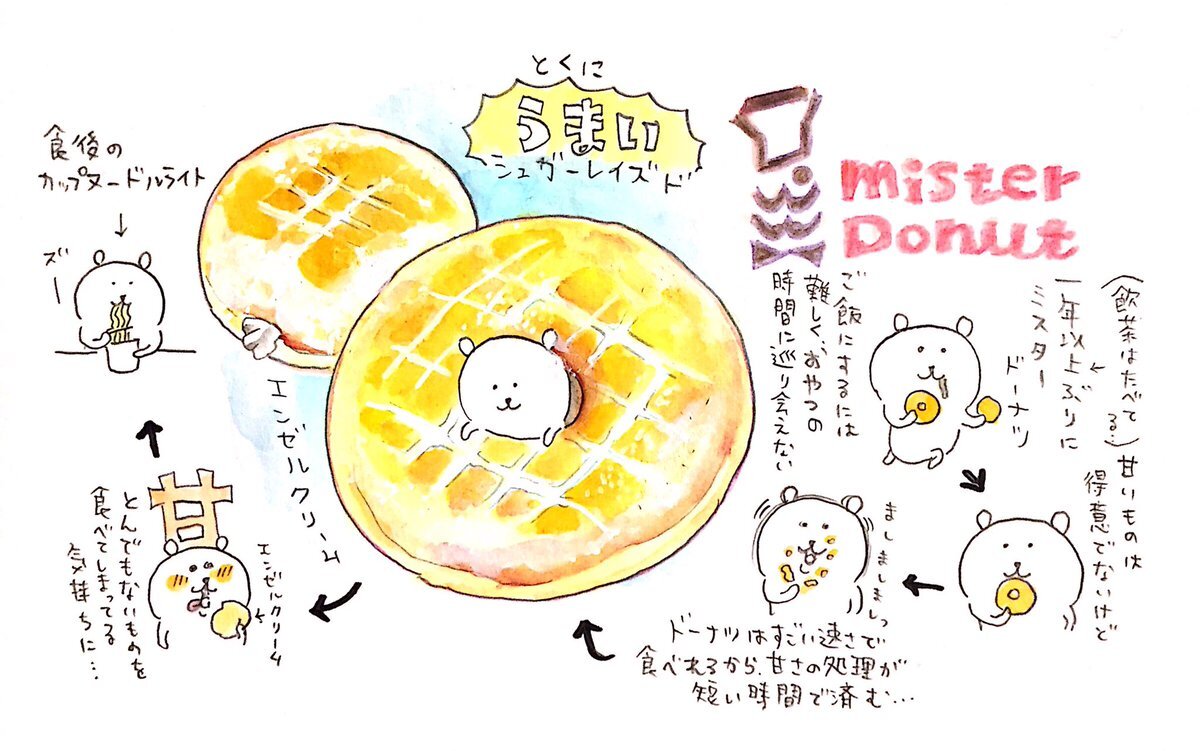 mister
Donut
(飲茶はたべてる…)
一年以上ぶりに
ミスタードーナツ
ご飯にするには
難しく、おやつの
時間に巡り会えない
甘いものは
得意でないけど
ましましましっ
ドーナツはすごい速さで
食べれるから、甘さの処理が
短い時間で済む…
とくに
うまい
シュガーレイズド
エンゼルクリーム
甘
エンゼルクリーム
とんでもないものを
食べてしまってる
気持ちに…
食後の
カップヌードルライト
ズー